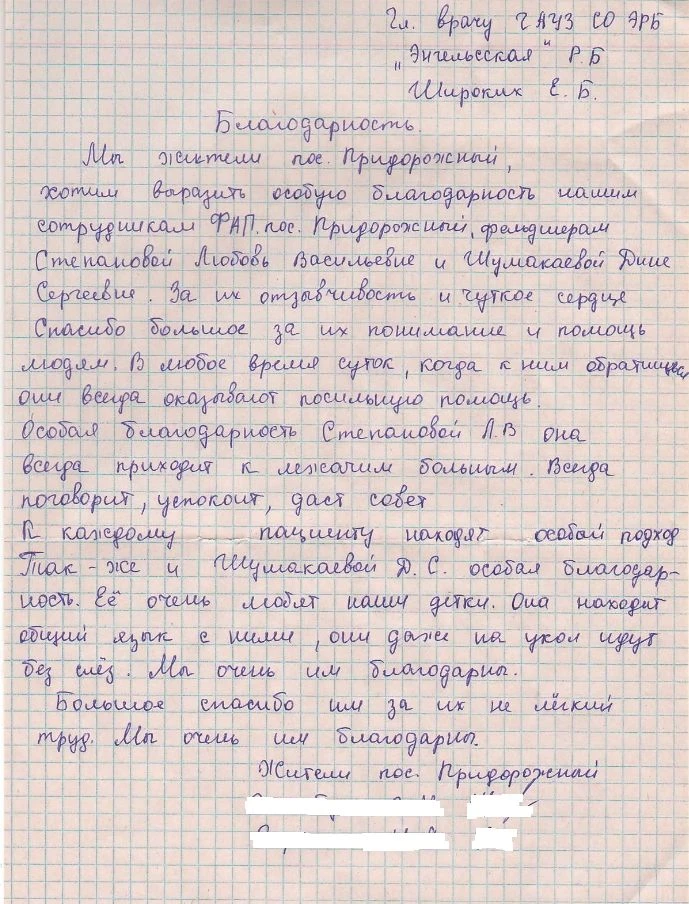 Гл. врачу ГАУЗ СО ЭРБ
„Энгельсская" Р.Б
Широких Е. Б.
Благодарность.
Мы жители пос. Придорожный,
хотим выразить особую благодарность нашим
сотрудникам ФАП. пос. Придорожный, фельдшерам
Степановой Любовь Васильевне и Шумакаевой Дине
Сергеевне. За их отзывчивость и чуткое сердце
Спасибо большое за их понимание и помощь
людям. В любое время суток, когда к ним обратишься
они всегда оказывают посильную помощь.
Особая благодарность Степановой Л.В она
всегда приходит к лежачим больным. Всегда
поговорит, успокоит, даст совет
К каждому пациенту находят особый подход
Так-же и Шумакаевой Д. С. особая благодар-
ность. Её очень любят наши детки. Она находит
общий язык с ними, они даже на укол идут
без слёз. Мы очень им благодарны.
Большое спасибо им за их не лёгкий
труд. Мы очень им благодарны.
Жители пос. Придорожный